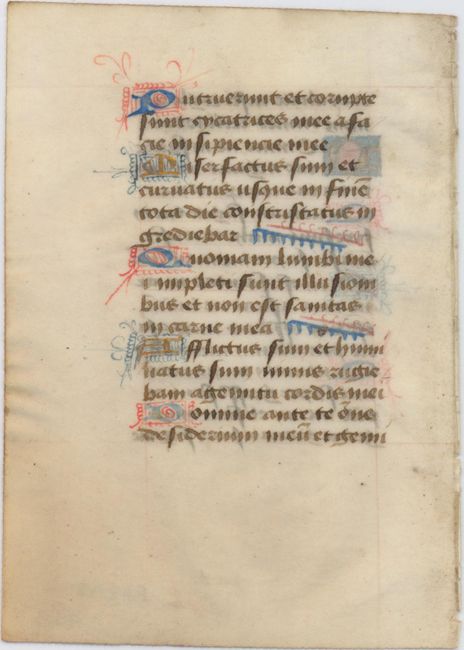 Putruerunt et corupte
sunt cycatrices mee a fa
cie insipiencie mee
Miser factus sum et
curvatus usque in finē
tota die constristatus in
grediebar
Quoniam lumbi me
i impleti sunt illusioni
bus et non est sanitas
in carne mea
Afflictus sum et humi
liatus sum nimis rugie
bam a gemitu cordis mei
Domine ante te om̄e
desiderium meū et gemi